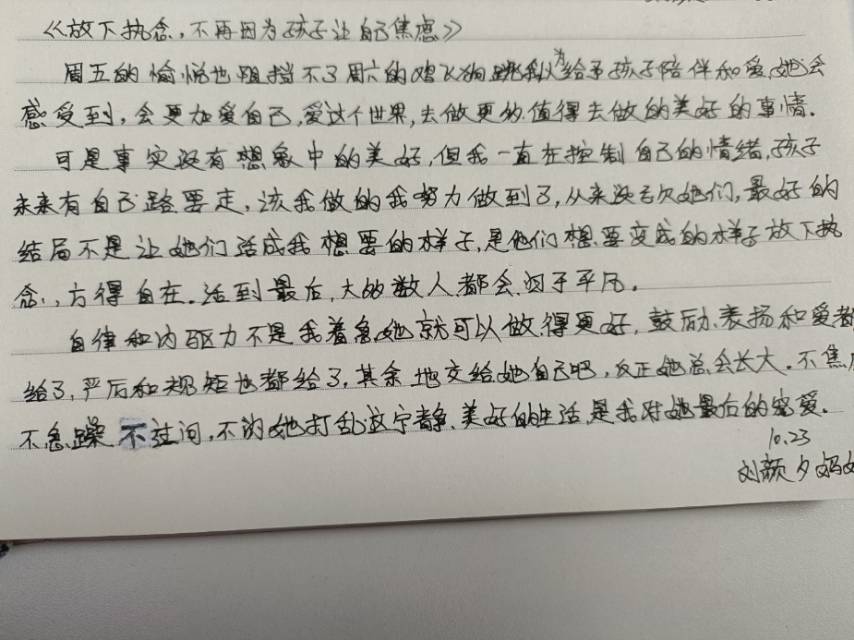 《放下执念,不再因为孩子让自己焦虑》
周五的愉悦也阻挡不了周六的鸡飞狗跳,我以为给予孩子陪伴和爱,她会
感受到,会更加爱自己,爱这个世界,去做更多值得去做的美好的事情.
可是事实没有想象中的美好,但我一直在控制自己的情绪,孩子
未来有自己路要走,该我做的我努力做到了,从来没亏欠她们,最好的
结局不是让她们活成我想要的样子,是他们想要变成的样子放下执
念,方得自在.活到最后,大多数人都会归于平凡.
自律和内驱力不是我着急她就可以做得更好,鼓励、表扬和爱都
给了,严厉和规矩也都给了,其余地交给她自己吧,反正她总会长大.不焦
不急躁不过问,不让她打乱这宁静、美好的生活,是我对她最后的宠爱.
10.23
刘颜夕妈妈